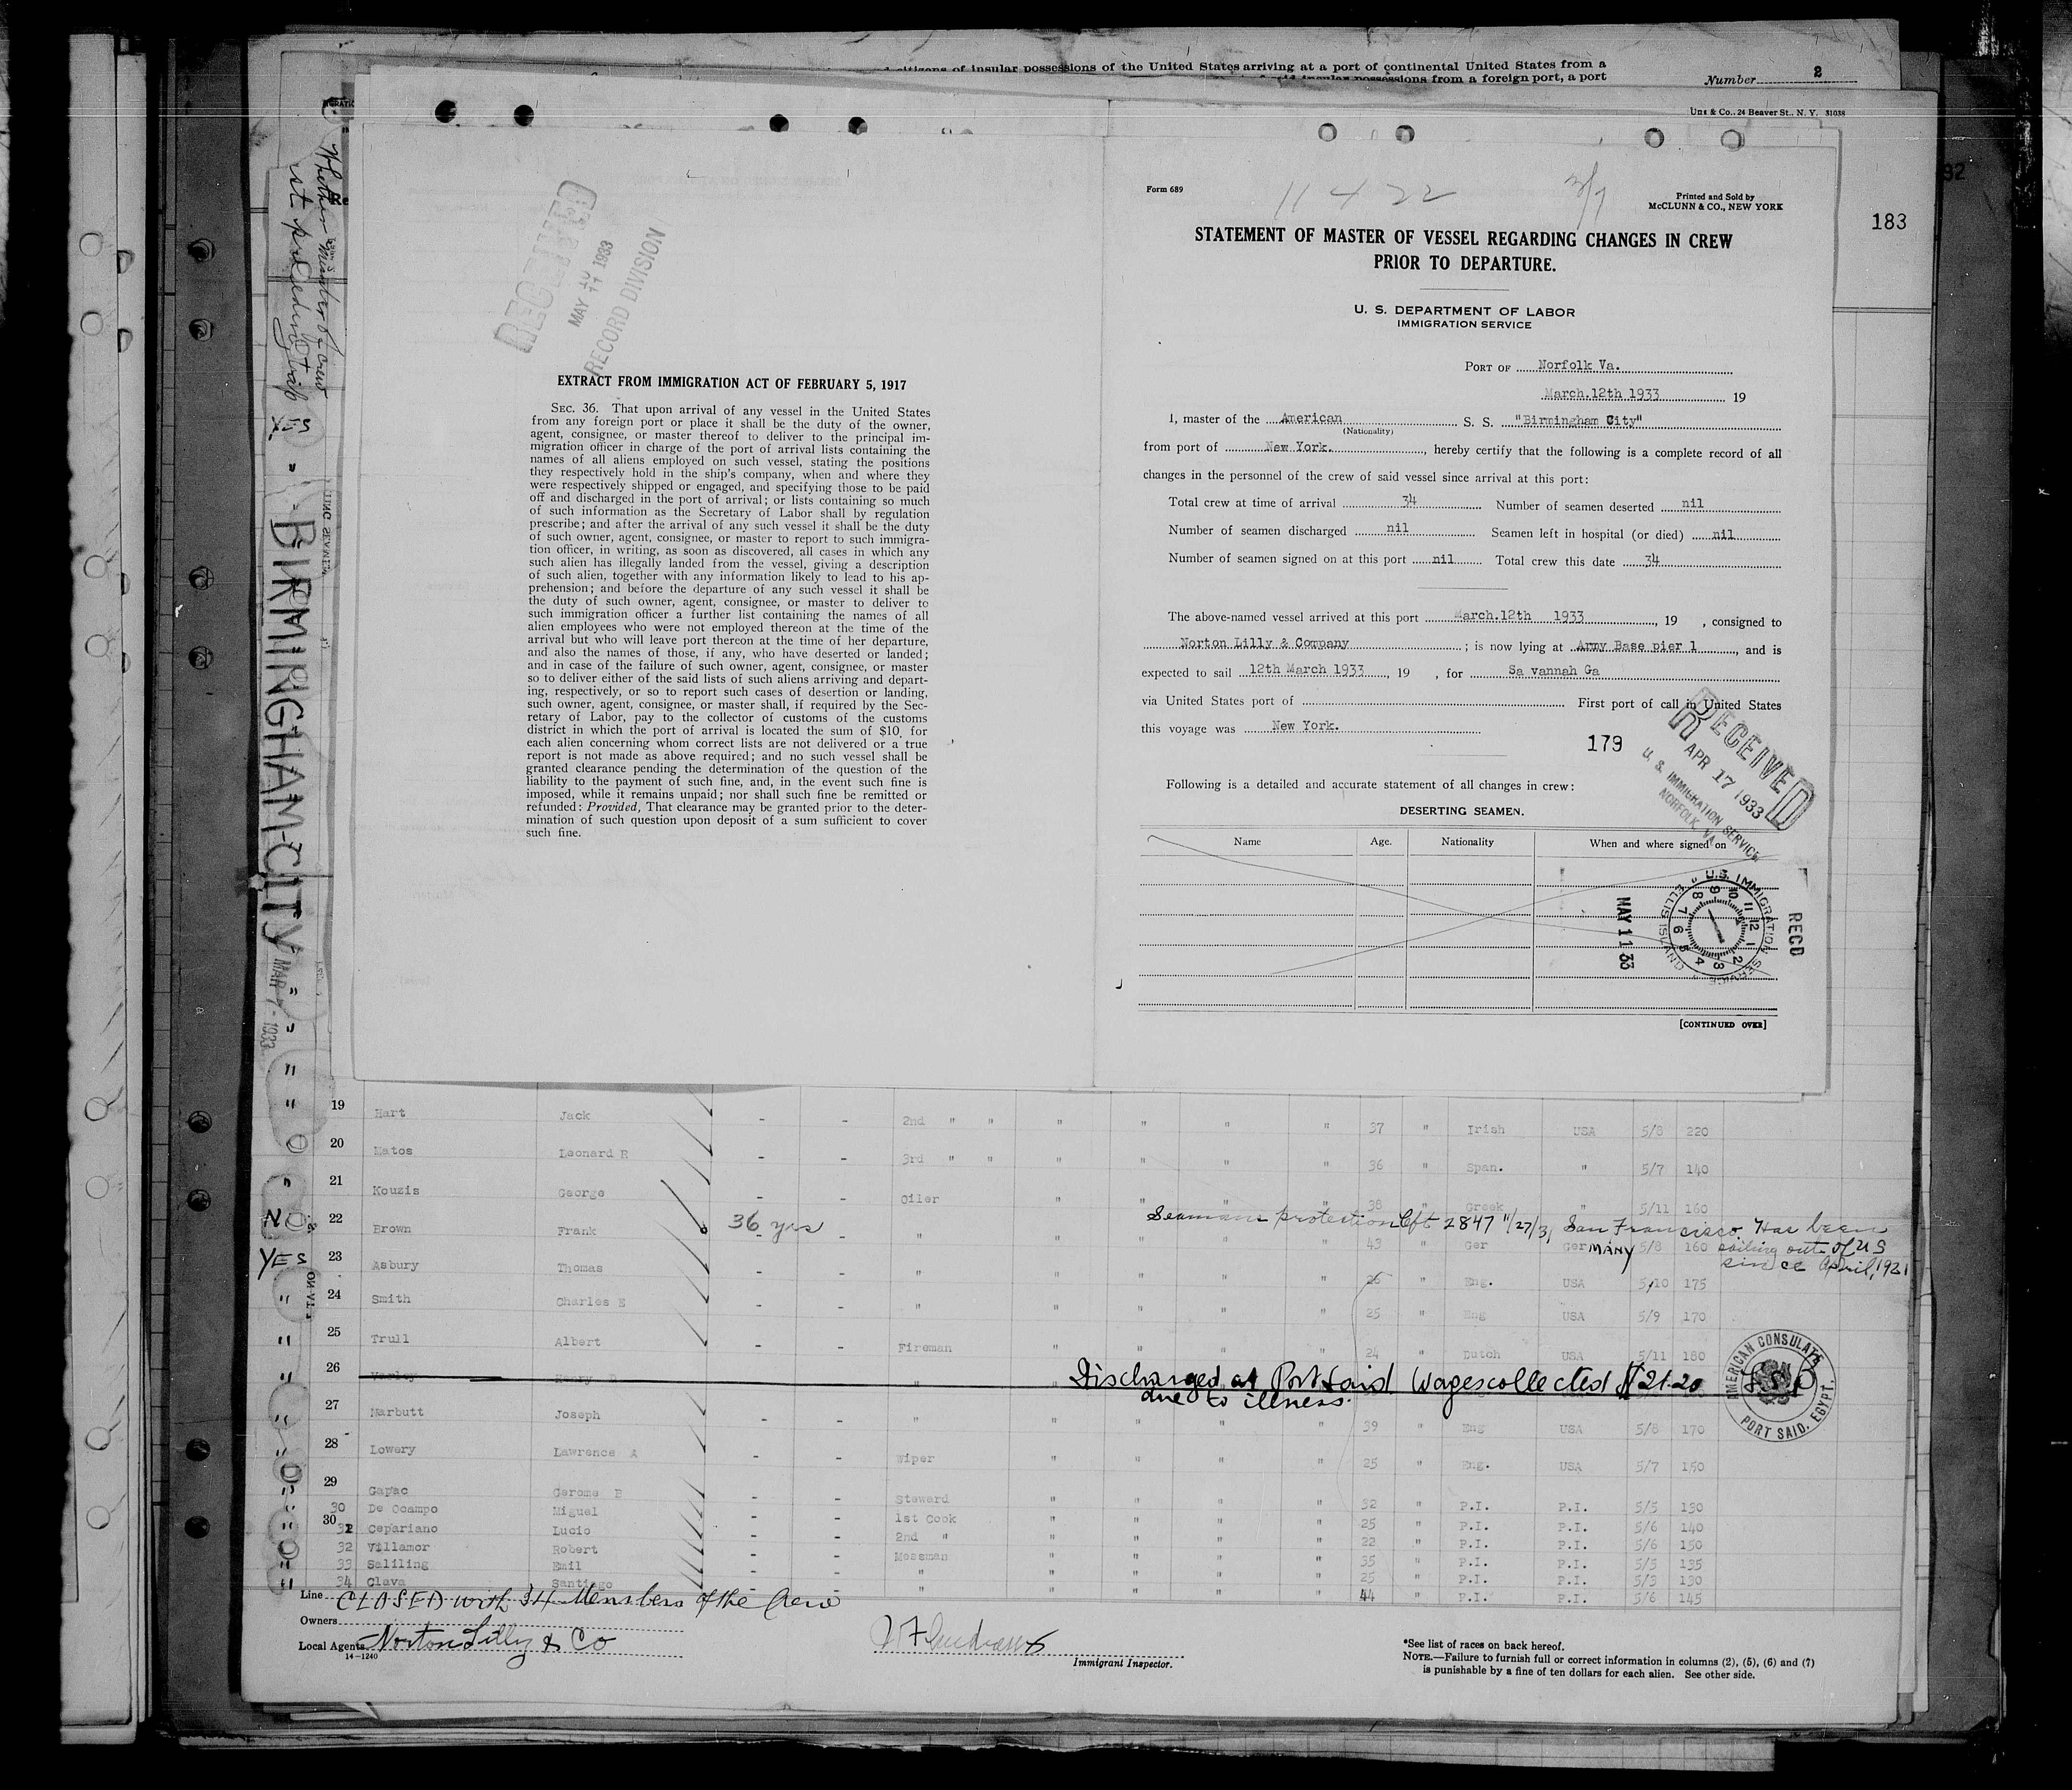 citizens of insular possessions of the United States arriving at a port of continental United States from a
possessions from a foreign port, a port
Number 2
Uns & Co., 24 Beaver St., N. Y. 31038
92
183
Whether Member of crew
st preceding trip
YES
BIRMINGHAM-CITY
MAR 7-1933
RECEIVED
MAY 10 11 1933
RECORD DIVISION
EXTRACT FROM IMMIGRATION ACT OF FEBRUARY 5, 1917
SEC. 36. That upon arrival of any vessel in the United States
from any foreign port or place it shall be the duty of the owner,
agent, consignee, or master thereof to deliver to the principal im-
migration officer in charge of the port of arrival lists containing the
names of all aliens employed on such vessel, stating the positions
they respectively hold in the ship's company, when and where they
were respectively shipped or engaged, and specifying those to be paid
off and discharged in the port of arrival; or lists containing so much
of such information as the Secretary of Labor shall by regulation
prescribe; and after the arrival of any such vessel it shall be the duty
of such owner, agent, consignee, or master to report to such immigra-
tion officer, in writing, as soon as discovered, all cases in which any
such alien has illegally landed from the vessel, giving a description
of such alien, together with any information likely to lead to his ap-
prehension; and before the departure of any such vessel it shall be
the duty of such owner, agent, consignee, or master to deliver to
such immigration officer a further list containing the names of all
alien employees who were not employed thereon at the time of the
arrival but who will leave port thereon at the time of her departure,
and also the names of those, if any, who have deserted or landed;
and in case of the failure of such owner, agent, consignee, or master
so to deliver either of the said lists of such aliens arriving and depart-
ing, respectively, or so to report such cases of desertion or landing,
such owner, agent, consignee, or master shall, if required by the Sec-
retary of Labor, pay to the collector of customs of the customs
district in which the port of arrival is located the sum of $10 for
each alien concerning whom correct lists are not delivered or a true
report is not made as above required; and no such vessel shall be
granted clearance pending the determination of the question of the
liability to the payment of such fine, and, in the event such fine is
imposed, while it remains unpaid; nor shall such fine be remitted or
refunded: Provided, That clearance may be granted prior to the deter-
mination of such question upon deposit of a sum sufficient to cover
such fine.
Form 689
11422 3/7
Printed and Sold by
McCLUNN & CO., NEW YORK
STATEMENT OF MASTER OF VESSEL REGARDING CHANGES IN CREW
PRIOR TO DEPARTURE.
U. S. DEPARTMENT OF LABOR
IMMIGRATION SERVICE
PORT OF Norfolk Va.
March.12th 1933 19
I, master of the American S. S. "Birmingham City"
(Nationality)
from port of New York. , hereby certify that the following is a complete record of all
changes in the personnel of the crew of said vessel since arrival at this port:
Total crew at time of arrival 34 Number of seamen deserted nil
Number of seamen discharged nil Seamen left in hospital (or died) nil
Number of seamen signed on at this port nil Total crew this date 34
The above-named vessel arrived at this port March.12th 1933 , 19 , consigned to
Norton Lilly & Company ; is now lying at Army Base pier 1 , and is
expected to sail 12th March 1933 , 19 , for Sa vannah Ga
via United States port of First port of call in United States
this voyage was New York.
179
RECEIVED
APR 17 1933
U. S. IMMIGRATION SERVICE
NORFOLK, VA
Following is a detailed and accurate statement of all changes in crew:
DESERTING SEAMEN.
Name Age. Nationality When and where signed on
RECD
U.S. IMMIGRATION SERVICE ELLIS ISLAND
MAY 11 33
[CONTINUED OVER]
19 Hart Jack - - 2nd " " " " " " 37 " Irish USA 5/8 220
20 Matos Leonard R - - 3rd " " " " " " 36 " Span. " 5/7 140
21 Kouzis George - - Oiler " " " " 38 " Greek " 5/11 160
Seamans protection Cft 2847 11/27/31 San Francisco. Has been
sailing out of US
since April, 1921
NO 22 Brown Frank 36 yrs - - " 43 " Ger Germany 5/8 160
YES 23 Asbury Thomas - - " " " " " 26 " Eng. USA 5/10 175
24 Smith Charles E - - " " " " " 25 " Eng USA 5/9 170
25 Trull Albert - - Fireman " " " " 24 " Dutch USA 5/11 180
26 Henry "
Discharged at Port Said Wages collected $21.20
due to illness.
AMERICAN CONSULATE
PORT SAID, EGYPT.
27 Marbutt Joseph - - " " " " " 39 " Eng USA 5/8 170
28 Lowery Lawrence A - - Wiper " " " " 25 " Eng. USA 5/7 150
29 Gapac Gerome B - - Steward " " " " 32 " P.I. P.I. 5/5 130
30 De Ocampo Miguel - - 1st Cook " " " " 25 " P.I. P.I. 5/6 140
30 31 Cepariano Lucio - - 2nd " " " " " 22 " P.I. P.I. 5/6 150
32 Villamor Robert - - Messman " " " " 35 " P.I. P.I. 5/5 135
33 Saliling Emil - - " " " " " 25 " P.I. P.I. 5/3 130
34 Clava Santiago - - " " " " " 44 " P.I. P.I. 5/6 145
Line CLOSED with 34 Members of the Crew
Owners
Local Agents Norton Lilly & Co
14—1240
Immigrant Inspector.
*See list of races on back hereof.
NOTE.—Failure to furnish full or correct information in columns (2), (5), (6) and (7)
is punishable by a fine of ten dollars for each alien. See other side.